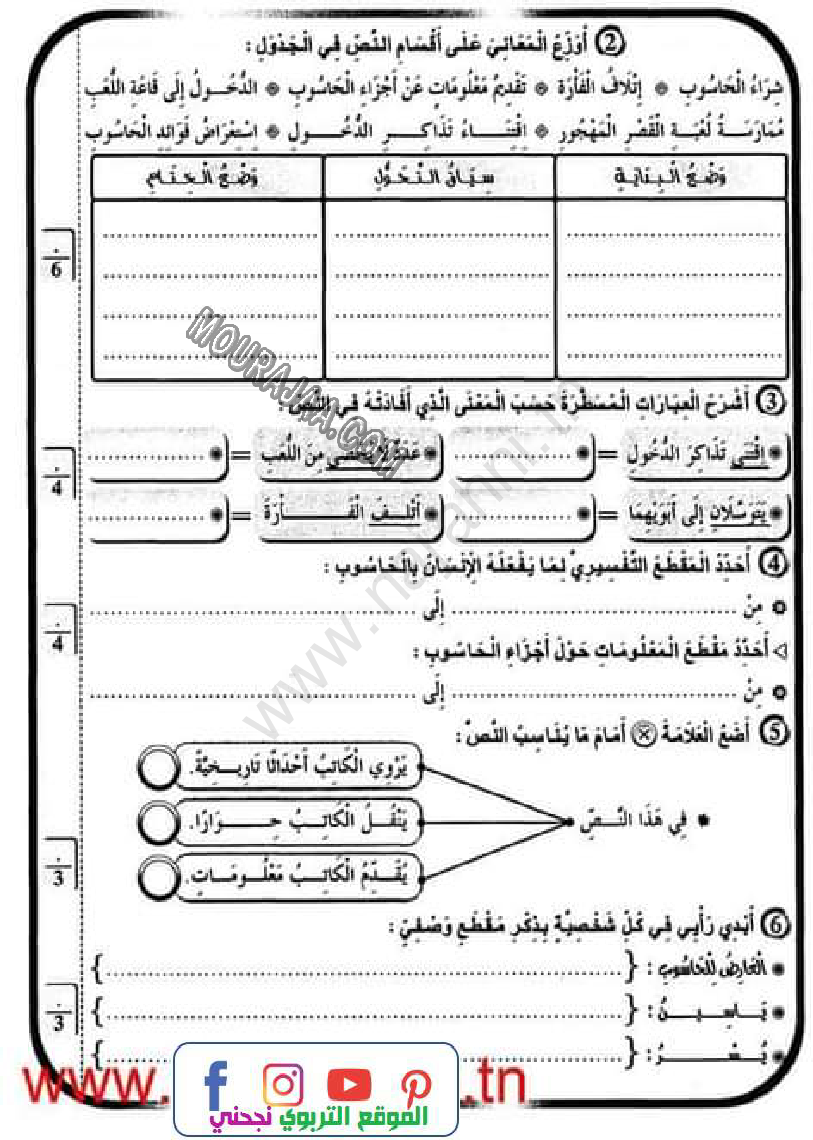 ② أُوَزِّعُ الْمَعَانِيَ عَلَى أَقْسَامِ النَّصِّ فِي الْجَدْوَلِ :
شِرَاءُ الْحَاسُوبِ * إِتْلَافُ الْفَأْرَةِ * تَقْدِيمُ مَعْلُومَاتٍ عَنْ أَجْزَاءِ الْحَاسُوبِ * الدُّخُولُ إِلَى قَاعَةِ اللُّعَبِ
مُمَارَسَةُ لُعْبَةِ الْقَصْرِ الْمَهْجُورِ * اِقْتِنَاءُ تَذَاكِرِ الدُّخُولِ * اِسْتِعْرَاضُ فَوَائِدِ الْحَاسُوبِ
وَضْعُ الْبِدَايَةِ سِيَاقُ التَّحَوُّلِ وَضْعُ الْخِتَامِ
6
③ أَشْرَحُ الْعِبَارَاتِ الْمُسَطَّرَةَ حَسَبَ الْمَعْنَى الَّذِي أَفَادَتْهُ فِي النَّصِّ :
اِقْتَنَى تَذَاكِرَ الدُّخُولِ = .............. عَدَدٌ لَا يُحْصَى مِنَ اللُّعَبِ = ..............
4
يَتَوَسَّلَانِ إِلَى أَبَوَيْهِمَا = .............. أَتْلَفَ الْفَأْرَةَ = ..............
④ أُحَدِّدُ الْمَقْطَعَ التَّفْسِيرِيَّ لِمَا يَفْعَلُهُ الْإِنْسَانُ بِالْحَاسُوبِ :
* مِنْ .............. إِلَى ..............
4
أُحَدِّدُ مَقْطَعَ الْمَعْلُومَاتِ حَوْلَ أَجْزَاءِ الْحَاسُوبِ :
* مِنْ .............. إِلَى ..............
⑤ أَضَعُ الْعَلَامَةَ ⊗ أَمَامَ مَا يُنَاسِبُ النَّصَّ :
يَرْوِي الْكَاتِبُ أَحْدَاثًا تَارِيخِيَّةً.
• فِي هَذَا النَّصِّ يَنْقُلُ الْكَاتِبُ حِوَارًا.
3
يُقَدِّمُ الْكَاتِبُ مَعْلُومَاتٍ.
⑥ أُبْدِي رَأْيِي فِي كُلِّ شَخْصِيَّةٍ بِذِكْرِ مَقْطَعٍ وَصْفِيٍّ :
• الْعَارِضُ لِلْحَاسُوبِ : {..............}
• يَاسِينُ : {..............}
3
{..............}
www. .tn
الموقع التربوي نجحني
MOURAJAA.COM